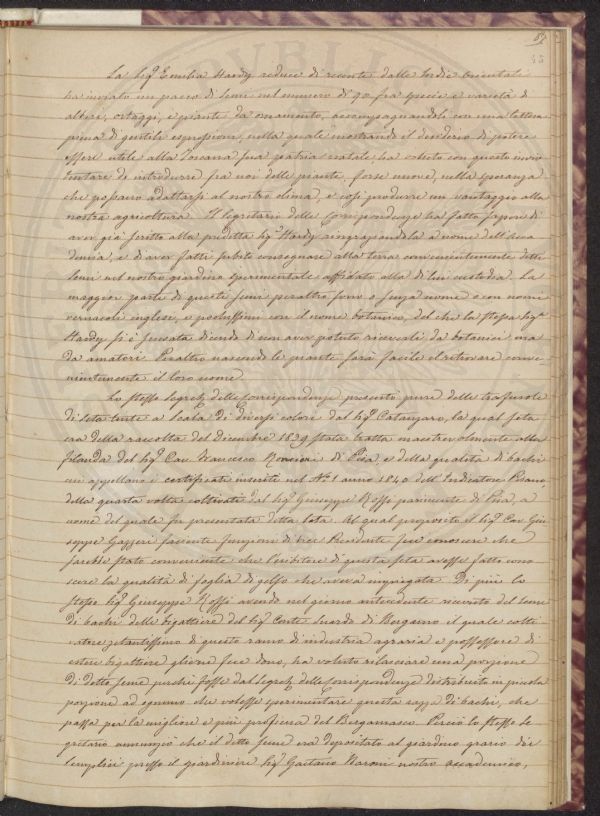 La Sig.ª Emilia Hardy reduce di recente dalle Indie orientali
ha inviato un pacco di semi nel numero di 90 fra specie e varietà di
alberi, ortaggi, e piante da ornamento, accompagnandoli con una lettera
piena di gentili espressioni, nella quale mostrando il desiderio di potere
essere utile alla Toscana sua patria natale, ha voluto con questo mezzo
tentare di introdurre fra noi delle piante, forse nuove, nella speranza
che possano adattarsi al nostro clima, e così produrre un vantaggio alla
nostra agricoltura. Il Segretario delle Corrispondenze ha fatto sapere di
aver già scritto alla predetta Sig.ª Hardy ringraziandola a nome dell'Acca
demia, e di aver fatti subito consegnare alla terra convenientemente detti
semi nel nostro giardino sperimentale affidato alla di lui custodia. La
maggior parte di questi semi peraltro sono o senza nome o con nome
vernacoli inglese, e pochissimi con il nome botanico, del che la stessa Sig.ª
Hardy si è scusata dicendo di non aver potuto riceverli da botanici ma
da amatori. Peraltro nascendo le piante sarà facile il ritrovare conve
nientemente il loro nome.
Lo stesso Segret.º delle Corrispondenze presentò pure delle trafusole
di seta tinte a scala di diversi colori dal Sig.ʳ Catanzaro, la qual seta
era della raccolta del Dicembre 1839 stata tratta maestrevolmente alla
filanda del Sig.ʳ Cav. Francesco Roncioni di Pisa, e della qualità di bachi
cui appellano i certificati inseriti nel N.º 1 anno 1840 dell'Indicatore Pisano
della quarta volta coltivati dal Sig.ʳ Giuseppe Rossi parimente di Pisa, a
nome del quale fu presentata detta seta. Al qual proposito il Sig.ʳ Cav. Giu
seppe Gazzeri facente funzioni di vice Presidente fece conoscere che
sarebbe stato conveniente che l'esibitore di questa seta avesse fatto cono
scere la qualità di foglia di gelso che aveva impiegata. Di più lo
stesso Sig.ʳ Giuseppe Rossi avendo nel giorno antecedente ricevuto del seme
di bachi delle bigattiere del Sig.ʳ Conte Suardo di Bergamo il quale colti
vatore zelantissimo di questo ramo di industria agraria e possessore di
estese bigattiere gliene fece dono, ha voluto rilasciare una porzione
di detto seme perchè fosse dal Segret.º delle Corrispondenze distribuito in piccola
porzione ad ognuno che volesse sperimentare questa razza di bachi, che
passa per la migliore e più proficua del Bergamasco. Perciò lo stesso Se
gretario annunziò che il detto seme era depositato al giardino grario dei
Semplici presso il giardiniere Sig.ʳ Gaetano Baroni nostro accademico,